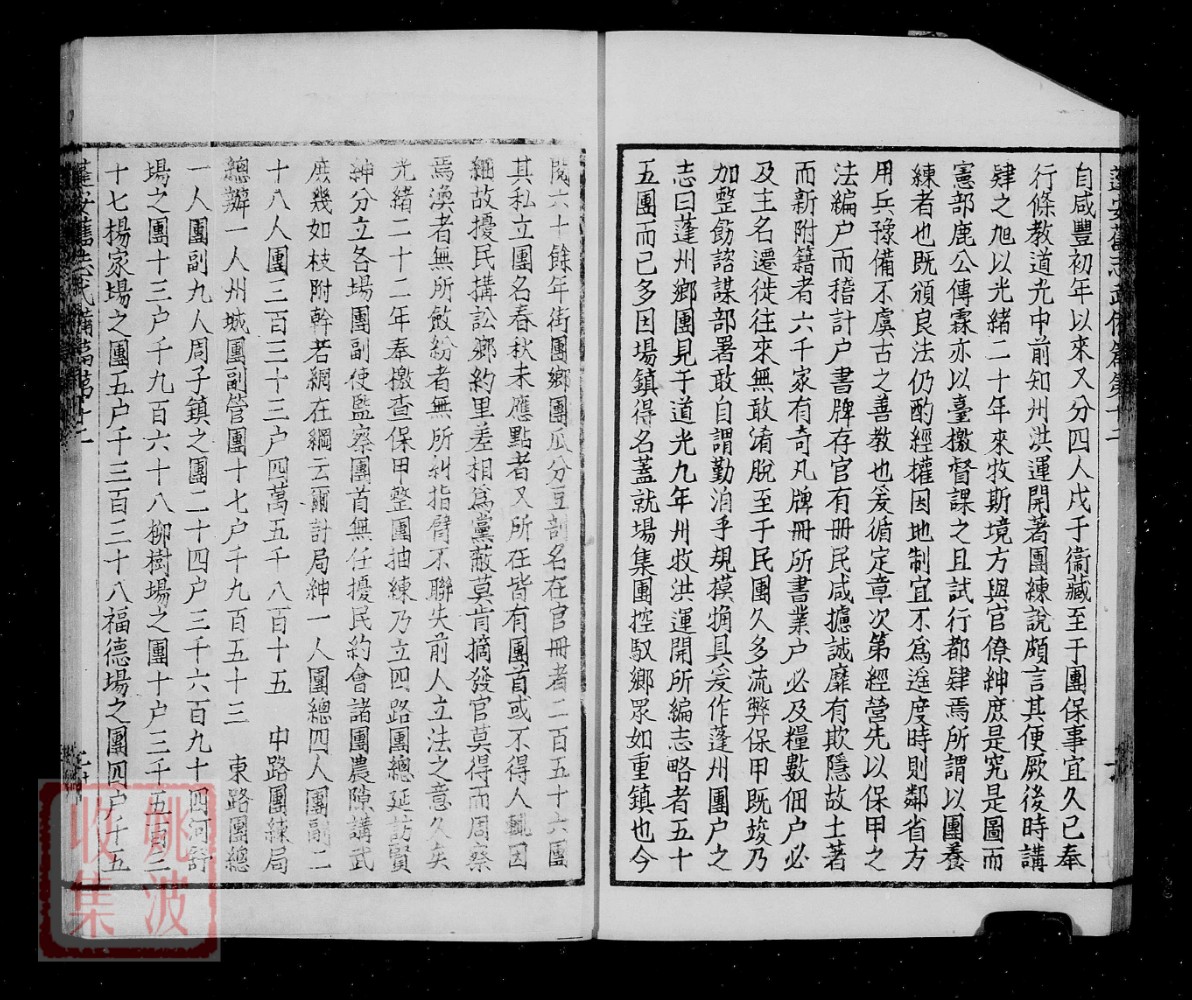 自咸豐初年以來又分四人戍于衞藏至于團保事宜久已奉
行條教道光中前知州洪運開著團練說頗言其便厥後時講
肄之旭以光緒二十年來牧斯境方與官僚紳庶是究是圖而
憲部鹿公傳霖亦以臺檄督課之且試行都肄焉所謂以團養
練者也既頒良法仍酌經權因地制宜不爲遙度時則鄰省方
用兵豫備不虞古之善教也爰循定章次第經營先以保甲之
法編户而稽計户書牌存官有册民咸攄誠靡有欺隱故土著
而新附籍者六千家有奇凡牌冊所書業户必及糧數佃户必
及主名遷徙往來無敢淆脫至于民團久多流弊保甲既竣乃
加整飭諮謀部署敢自謂勤洎乎規模觕具爰作蓬州團户之
志曰蓬州鄉團見于道光九年州牧洪運開所編志略者五十
五團而已多因場鎮得名蓋就場集團控馭鄉眾如重鎮也今
閱六十餘年街團鄉團瓜分豆剖名在官冊者二百五十六團
其私立團名春秋未應點者又所在皆有團首或不得人輒因
細故擾民搆訟鄉約里差相爲黨蔽莫肯摘發官莫得而周察
焉渙者無所斂紛者無所糾指臂不聯失前人立法之意久矣
光緒二十二年奉檄查保甲整團抽練乃立四路團總延訪賢
紳分立各場團副使監察團首無任擾民約會諸團農隙講武
庶幾如枝附幹若網在綱云爾計局紳一人團總四人團副二
十八人團二百三十三户四萬五千八百十五 中路團練局
總辦一人州城團副管團十七户千九百五十三 東路團總
一人團副九人周子鎮之團二十四户三千六百九十四河舒
場之團十三户千九百六十八柳樹場之團十户三千五百二
十七楊家場之團五户千三百三十八福德場之團四户千五
蓬安舊志武備篇第十二
姚波
收集